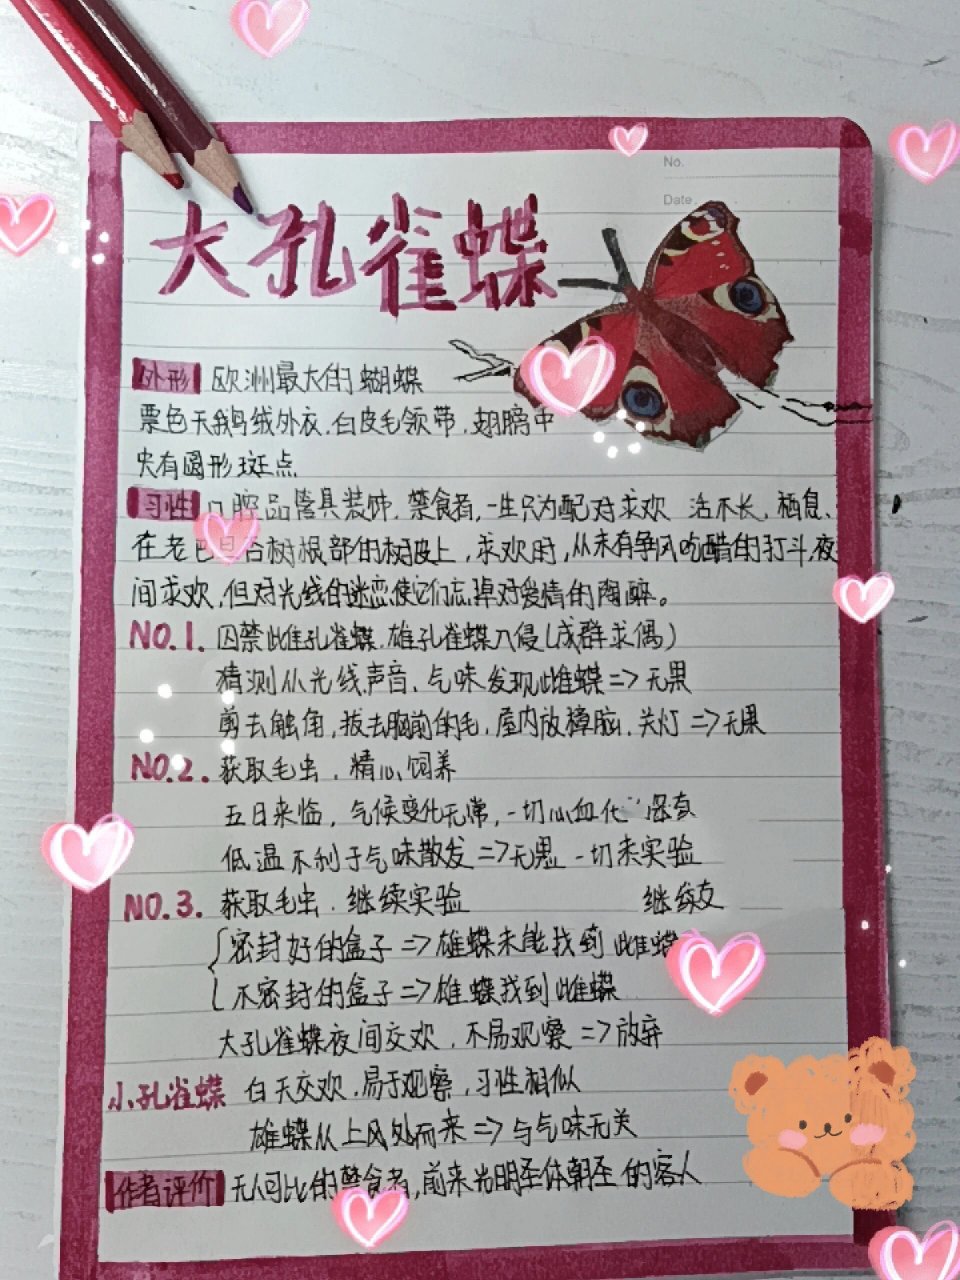 No.
Date
大孔雀蝶
外形 欧洲最大的蝴蝶
票色天鹅绒外衣.白皮毛领带,翅膀中
央有圆形斑点
习性 口腔器具装饰.禁食者,一生只为配对求欢 活不长,栖息
在老巴旦杏树根部的树皮上,求欢时,从未有争风吃醋的打斗,夜
间求欢,但对光线的迷恋使它们忘掉对爱情的陶醉。
NO.1. 囚禁雌孔雀蝶.雄孔雀蝶入侵(成群求偶)
猜测从光线.声音、气味发现雌蝶=>无果
剪去触角,拔去胸前的毛,屋内放樟脑.关灯=>无果
NO.2. 获取毛虫.精心饲养
五日来临,气候变化无常,一切心血化
低温不利于气味散发=>无 一切未实验
NO.3. 获取毛虫.继续实验
{密封好的盒子=>雄蝶未能找到雌蝶
不密封的盒子=>雄蝶找到雌蝶
大孔雀蝶夜间交欢.不易观察=>放弃
小孔雀蝶 白天交欢.易于观察,习性相似
雄蝶从上风处而来=>与气味无关
作者评价 无可比的禁食者,前来光明圣体朝圣的客人